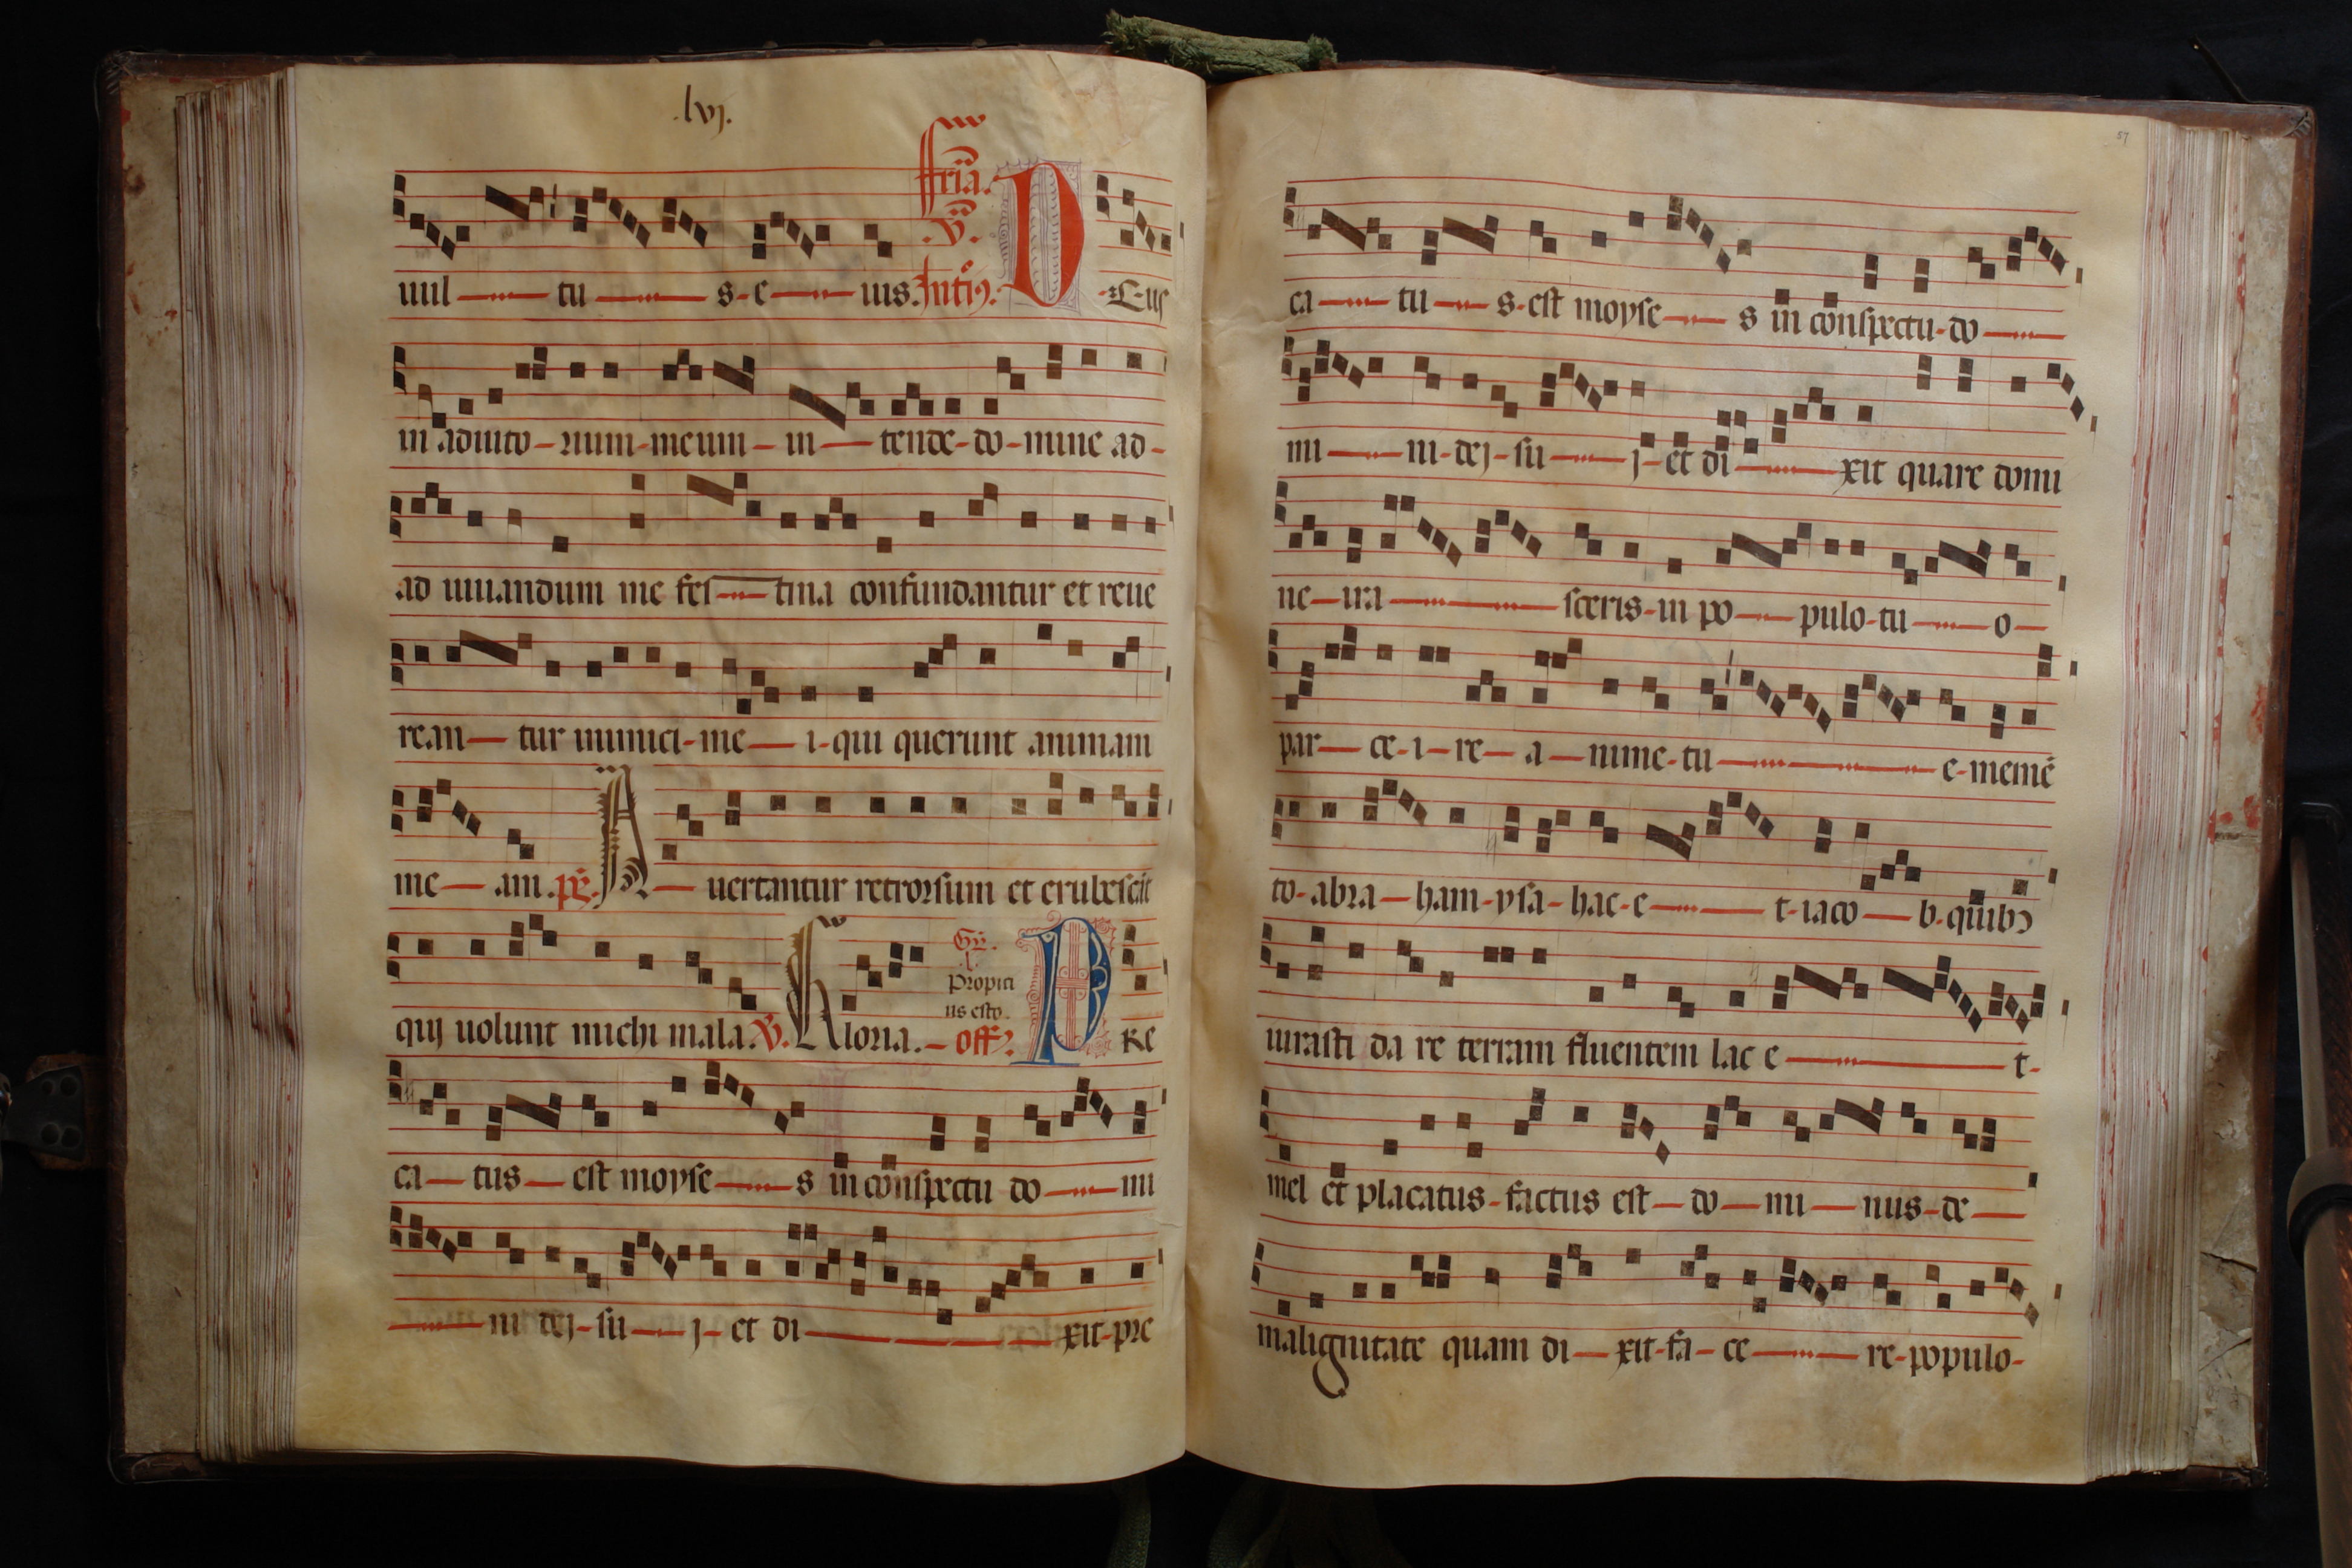 .lvj.
uul tu s-e uus. Intiꝰ: D-E-us
ffria.
.v.
in adiuto-rium-meum-in-tende-do-mine ad-
ad iuuandum me fes-tina confundantur et reue
rean-tur inimici-me-i-qui querunt animam
me-am. ps. A-uertantur retrorsum et erubescāt
quj uolunt michi mala. V. Gloria.- off? P RE
Gr.
Propici
us esto.
ca-tus-est moyse-s in conspectu do-mi
-ni dej-su-j-et di-xit-pre
57
ca-tu-s-est moyse-s in conspectu-do-
mi-ni-dej-su-j-et di-xit quare domi
ne-ira-sceris-in po-pulo-tu-o-
par-ce-i-re-a-nime-tu-e-memē
to-abra-ham-ysa-hac-e-t-iaco-b. quibꝰ
iurasti da re terram fluentem lac e-t-
mel et placatus-factus est-do-mi-nus-de-
malignitate quam di-xit-fa-ce-re-populo-